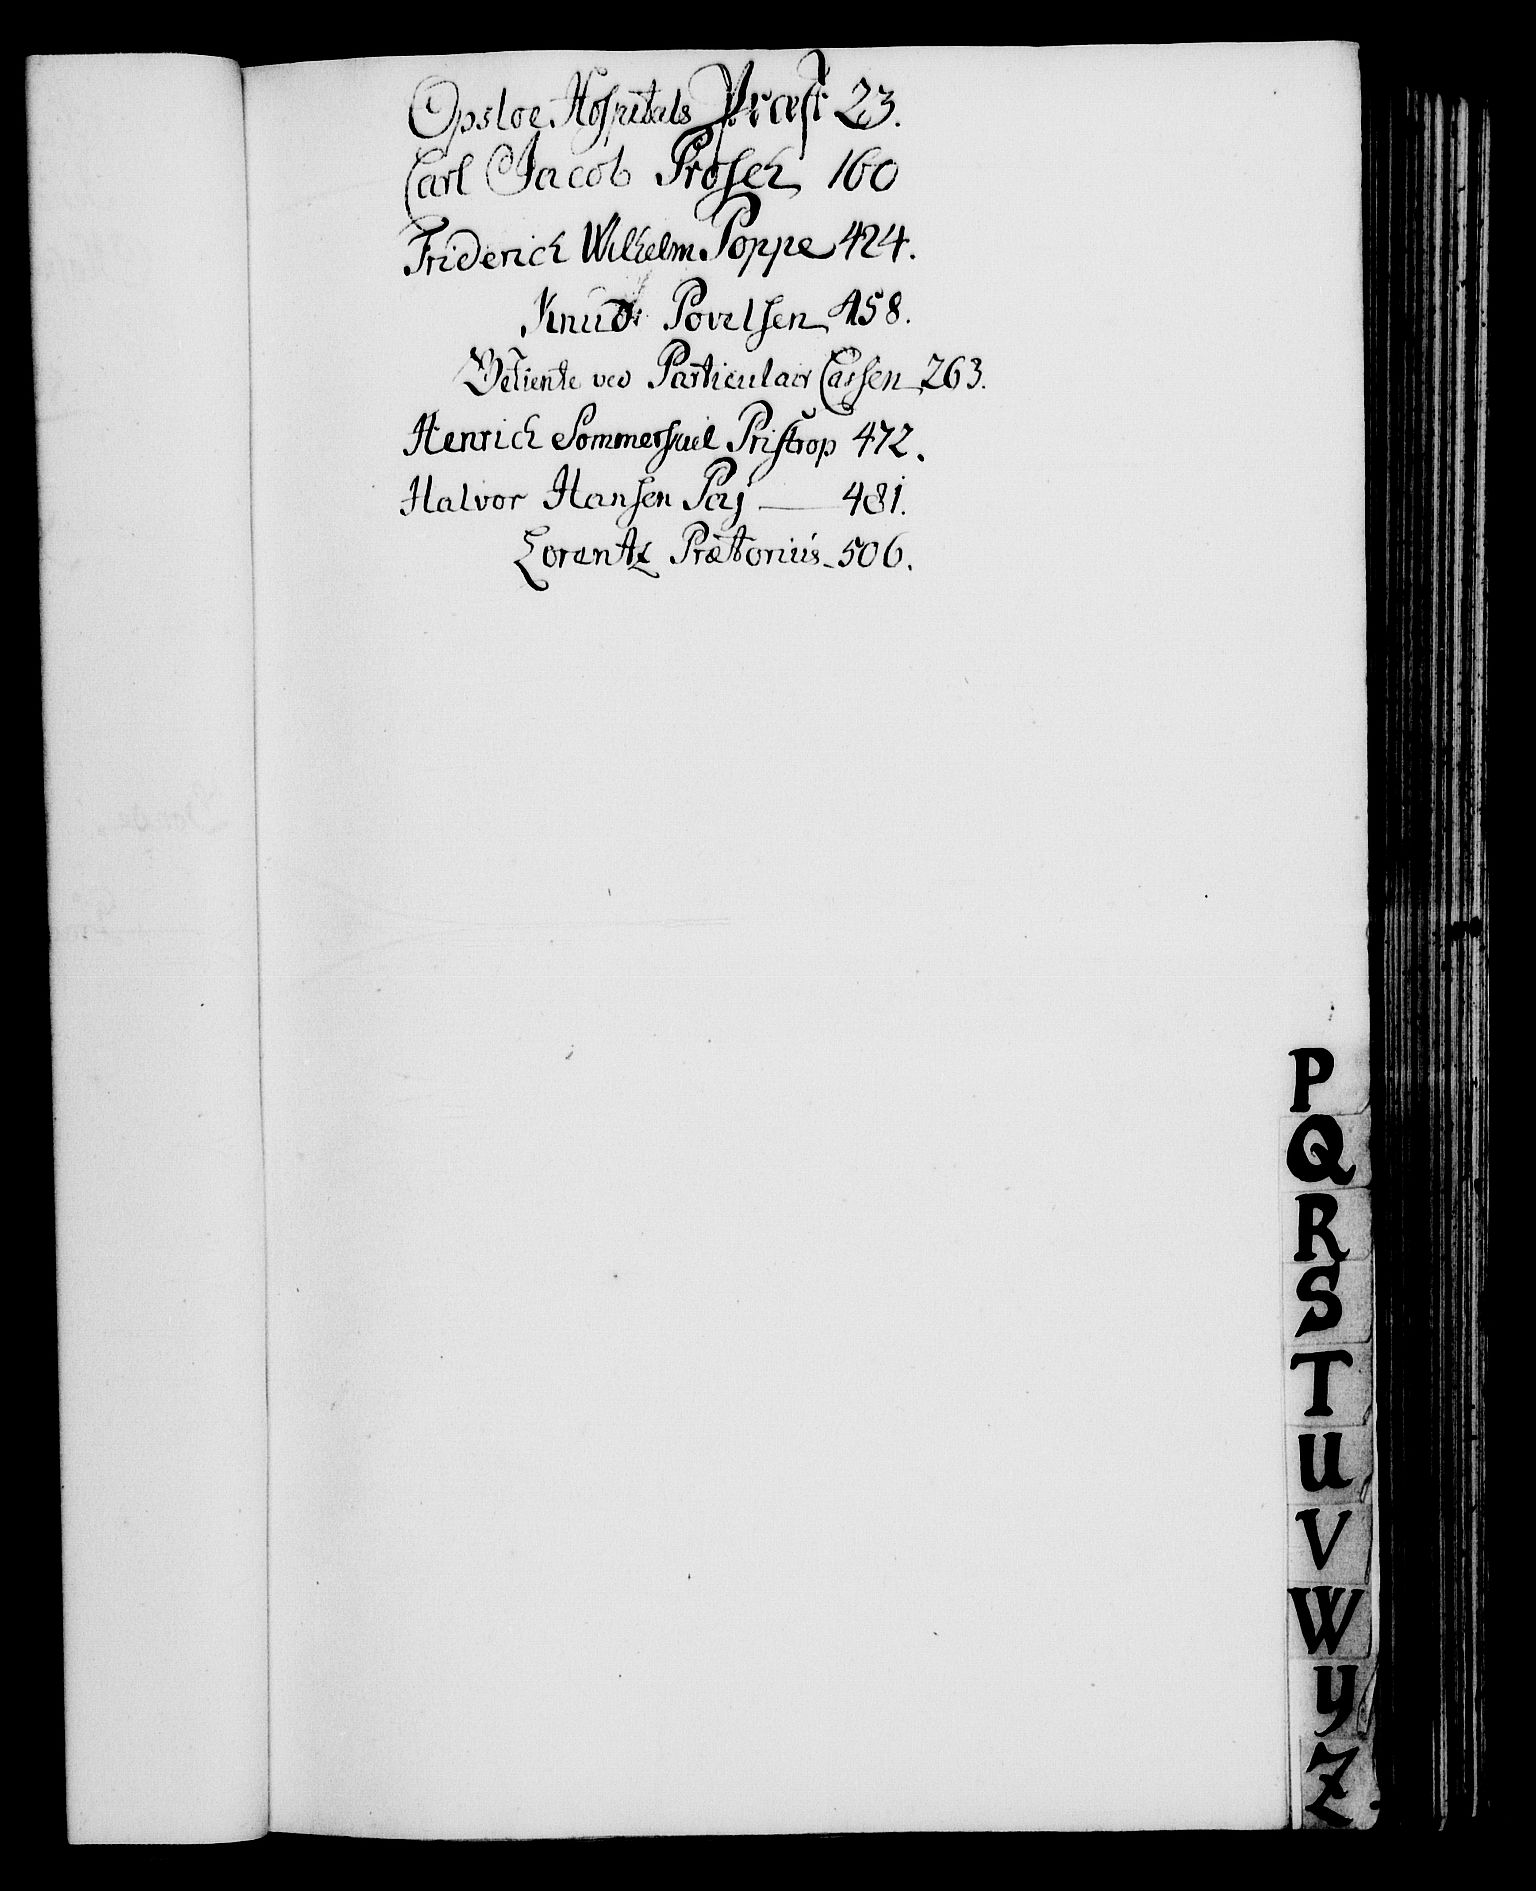 Opsloe Hospitals Præst 23.
Carl Jacob Prosch 160
Friderich Wilhelm Poppe 424.
Knud Povelsen 458.
Betiente ved Particulair Cassen 263.
Henrich Sommersuel Pristrop 472.
Halvor Hansen Paj — 481.
Lorentz Prætorius - 506.
P
Q
R
S
T
U
V
W
Y
Z